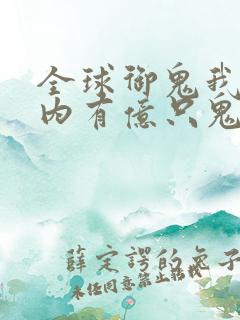 全球御鬼我
内有億只鬼
薛定諤的兔子
未经同意禁止转载